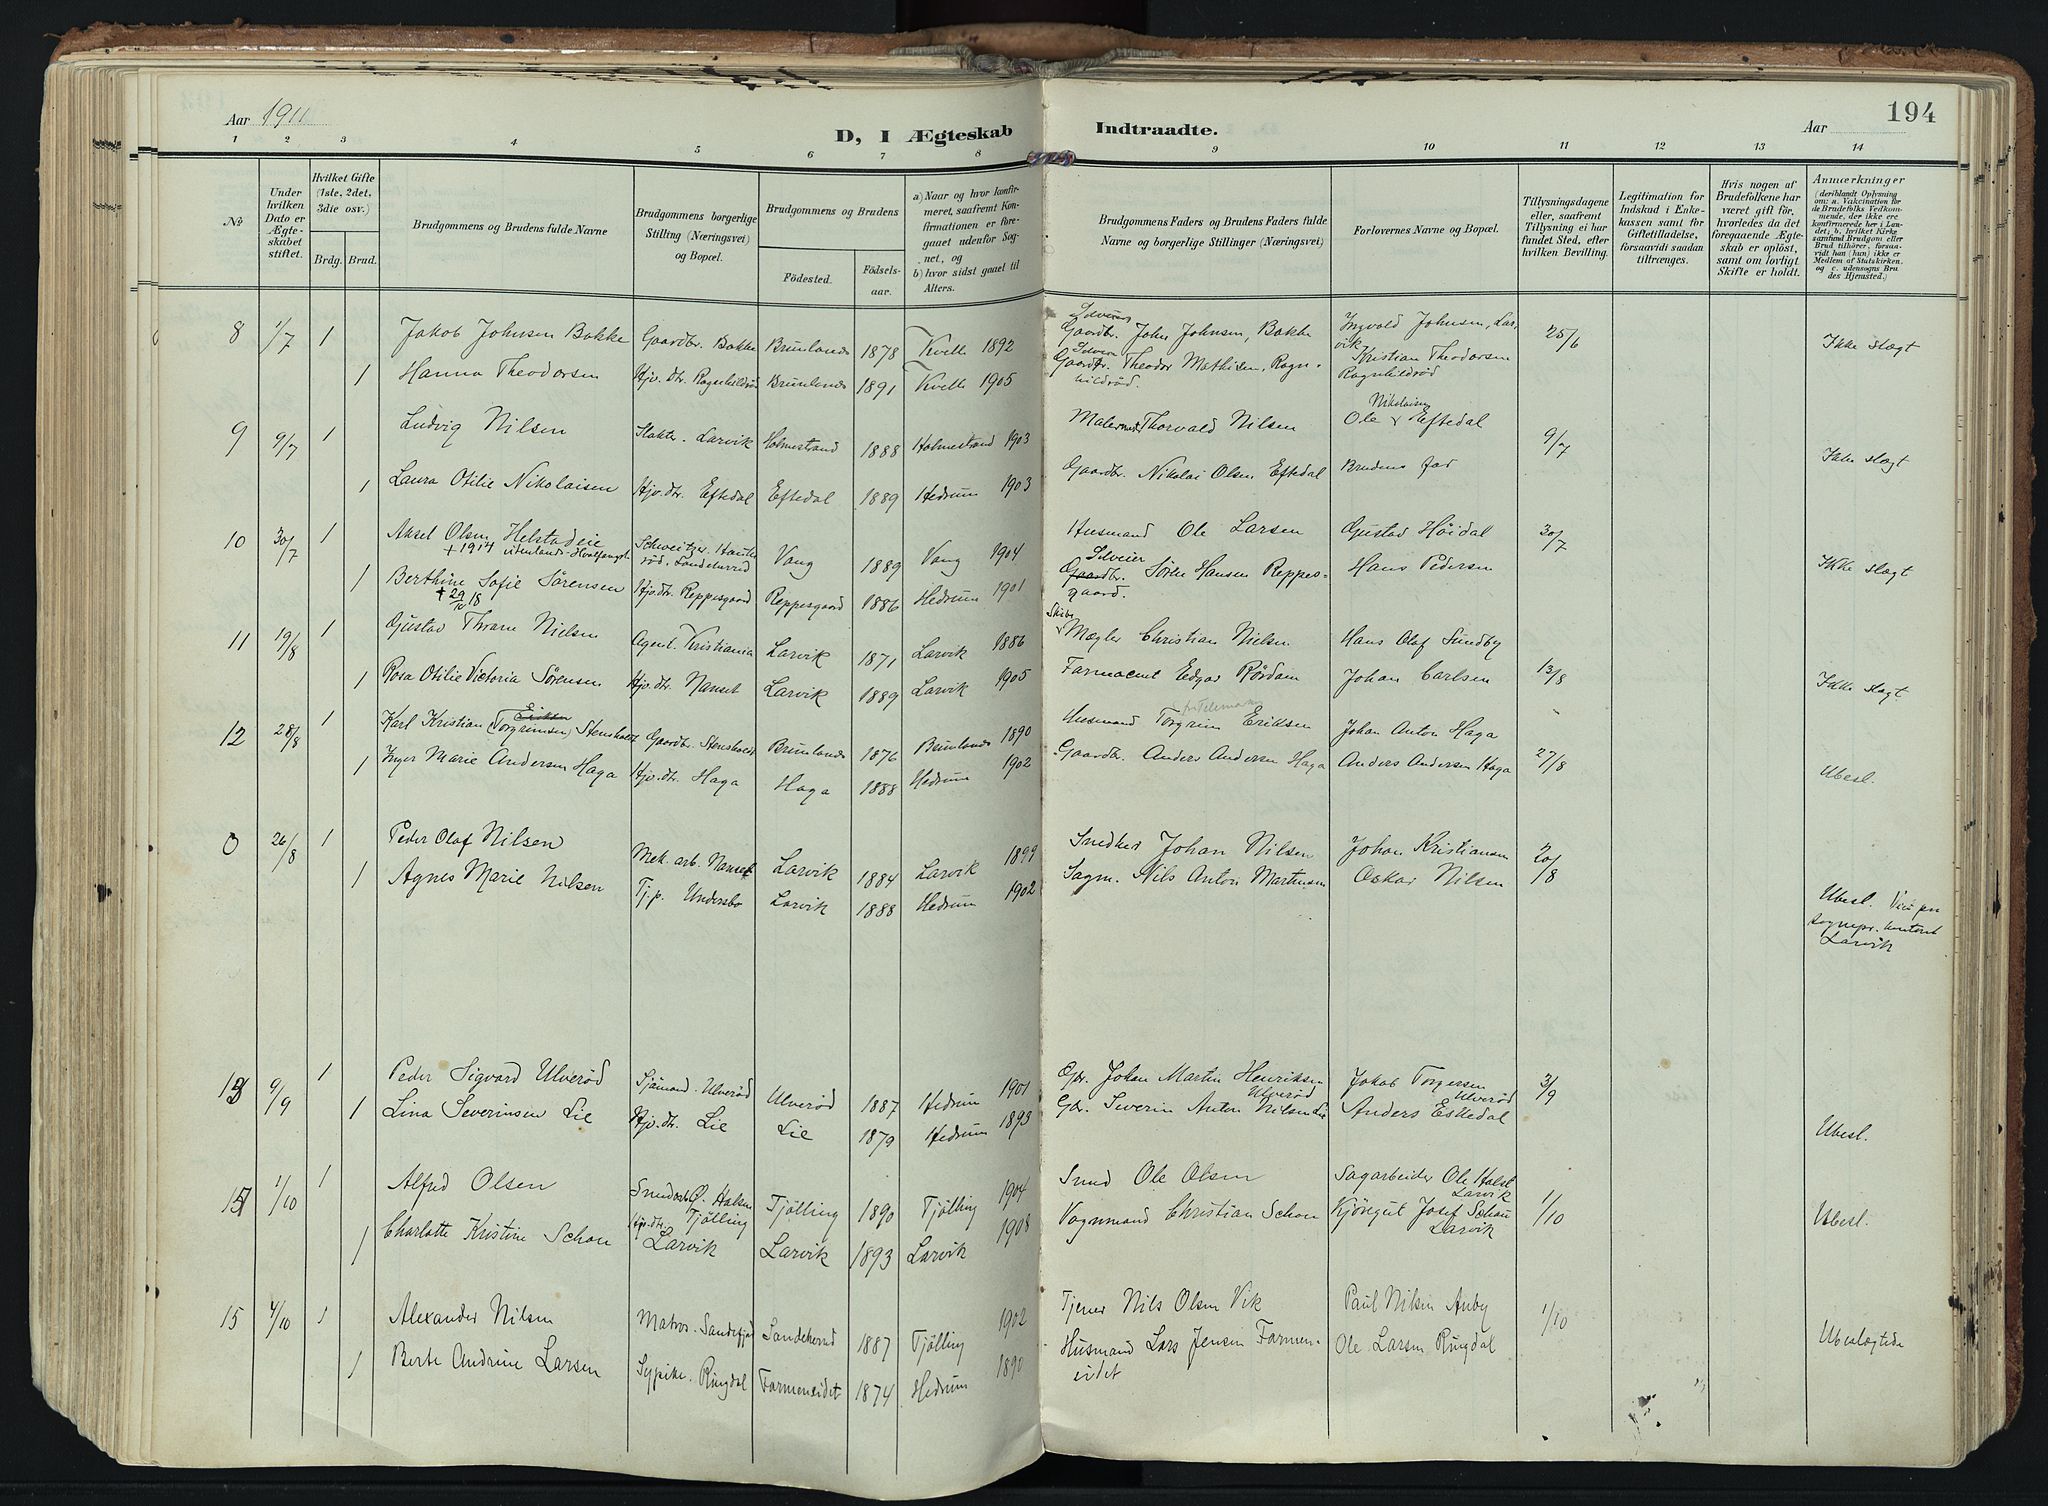 Aar 1911
D, I Ægteskab Indtraadte.
Aar
194
1 2 3 4 5 6 7 8 9 10 11 12 13 14
№
Under hvilken Dato er Ægteskabet stiftet.
Hvilket Gifte (1ste, 2det, 3die osv.)
Brdg. Brud.
Brudgommens og Brudens fulde Navne
Brudgommens borgerlige Stilling (Næringsvei) og Bopæl.
Brudgommens og Brudens
Födested.
Födselsaar.
a) Naar og hvor konfirmeret, saafremt Konfirmationen er foregaaet udenfor Sognet, og
b) hvor sidst gaaet til Alters.
Brudgommens Faders og Brudens Faders fulde Navne og borgerlige Stillinger (Næringsvei)
Forlovernes Navne og Bopæl.
Tillysningsdagene eller, saafremt Tillysning ei har fundet Sted, efter hvilken Bevilling.
Legitimation for Indskud i Enkekassen samt for Giftetilladelse, forsaavidt saadan tiltrænges.
Hvis nogen af Brudefolkene har været gift för, hvorledes da det foregaaende Ægteskab er oplöst, samt om lovligt Skifte er holdt.
Anmærkninger
(deriblandt Oplysning om: a. Vakcination for de Brudefolks Vedkommende, der ikke ere konfirmerede her i Landet; b. hvilket Kirkesamfund Brudgom eller Brud tilhörer, forsaavidt han (hun) ikke er Medlem af Statskirken, og c. udensogns Brudes Hjemsted.)
8 1/7 1 Jakob Johnsen Bakke Gaardbr. Bakke Brunlanes 1878 Kvelle 1892 Gaardbr. John Johnsen, Bakke Ingvald Johnsen, Larvik 25/6 Ikke slægt
1 Hanna Theodorsen Hjv. dtr. Ragnhildröd Brunlanes 1891 Kvelle 1905 Gaardbr. Theodor Mathisen, Ragnhildröd. Kristian Theodorsen Ragnhildröd
9 9/7 1 Ludvig Nilsen Slakter. Larvik Holmestrand 1888 Holmestrand 1903 Thorvald Nilsen Ole Nikolaisen Eftedal 9/7 Ikke slægt
1 Laura Otilie Nikolaisen Hjv. dtr. Eftedal Eftedal 1889 Hedrum 1903 Gaardbr. Nikolai Olsen Eftedal Brudens far
10 30/7 1 Aksel Olsen Helstadeie Schweitzer. Vang 1889 Vang 1904 Husmand Ole Larsen Gustav Höidal 30/7 Ikke slægt
+ 1914
1 Berthine Sofie Sörensen Hjv. dtr. Reppesgaard Reppesgaard 1886 Hedrum 1901 Selveier Gaardbr. Sören Hansen Reppesgaard. Hans Pedersen
+ 29/10 18
11 19/8 1 Gustav Thrane Nielsen Agent. Kristiania Larvik 1871 Larvik 1886 Skibs Mægler Christian Nielsen Hans Olaf Sundby 13/8 Ikke slægt
1 Rosa Otilie Victoria Sörensen Hjv. dtr. Nanset Larvik 1889 Larvik 1905 Farmaceut Edgar Rördam Johan Carlsen
12 28/8 1 Karl Kristian (Torgrimsen) Eriksen Stensholt Gaardbr. Stensholt Brunlanes 1876 Brunlanes 1890 Husmand Torgrim Eriksen fra Telemarken Johan Anton Haga 27/8 Ubesl.
1 Inger Marie Andersen Haga Hjv. dtr. Haga Haga 1888 Hedrum 1902 Gaardbr. Anders Andersen Haga Anders Andersen Haga
0 26/8 1 Peder Olaf Nilsen Mek. arb. Nanset Larvik 1884 Larvik 1899 Snedker Johan Nilsen Johan Kristiansen 20/8 Ubesl. Viet paa sognepr. kontoret Larvik
1 Agnes Marie Nilsen Tj. p. Undersbo Larvik 1888 Hedrum 1902 Sagm. Nils Anton Martinsen Oskar Nilsen
13 9/9 1 Peder Sigvard Ulveröd Sjömand. Ulveröd Ulveröd 1887 Hedrum 1901 Gbr. Johan Martin Henriksen Ulveröd Jakob Torgersen Ulveröd 3/9 Ubesl.
1 Lina Severinsen Lie Hjv. dtr. Lie Lie 1879 Hedrum 1893 Gbr. Severin Anton Nilsen Lie Anders Eskedal
15 1/10 1 Alfred Olsen Ö. Halsen Tjölling Tjölling 1890 Tjölling 1904 Smed Ole Olsen Sagarbeider Ole Holst Larvik 1/10 Ubesl.
1 Charlotte Kristine Schou Hjv. dtr. Larvik Larvik 1893 Larvik 1908 Vognmand Christian Schou Kjöregut Josef Schou Larvik
15 4/10 1 Alexander Nilsen Matros. Sandefjord Sandeherred 1887 Tjölling 1902 Tjener Nils Olsen Vik Paul Nilsen Auby 1/10 Ubeslægtede
1 Berte Andrine Larsen Sypike. Ringdal Farmeneidet 1874 Hedrum 1890 Husmand Lars Jensen Farmeneidet Ole Larsen Ringdal